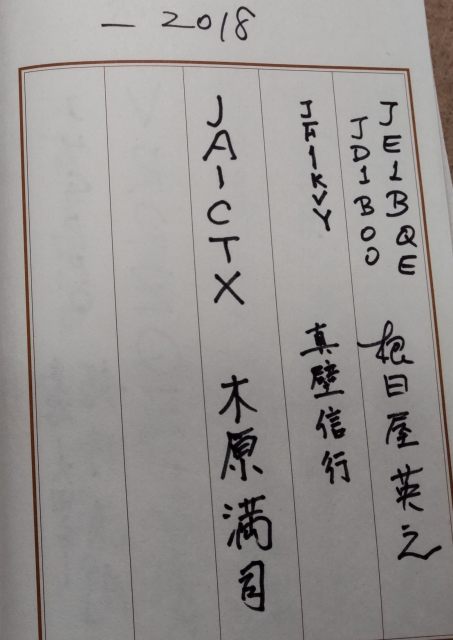 — 2018
JE1BQE 根日屋英之
JD1BOO
JA1KVY 真壁信行
JA1CTX 木原満司